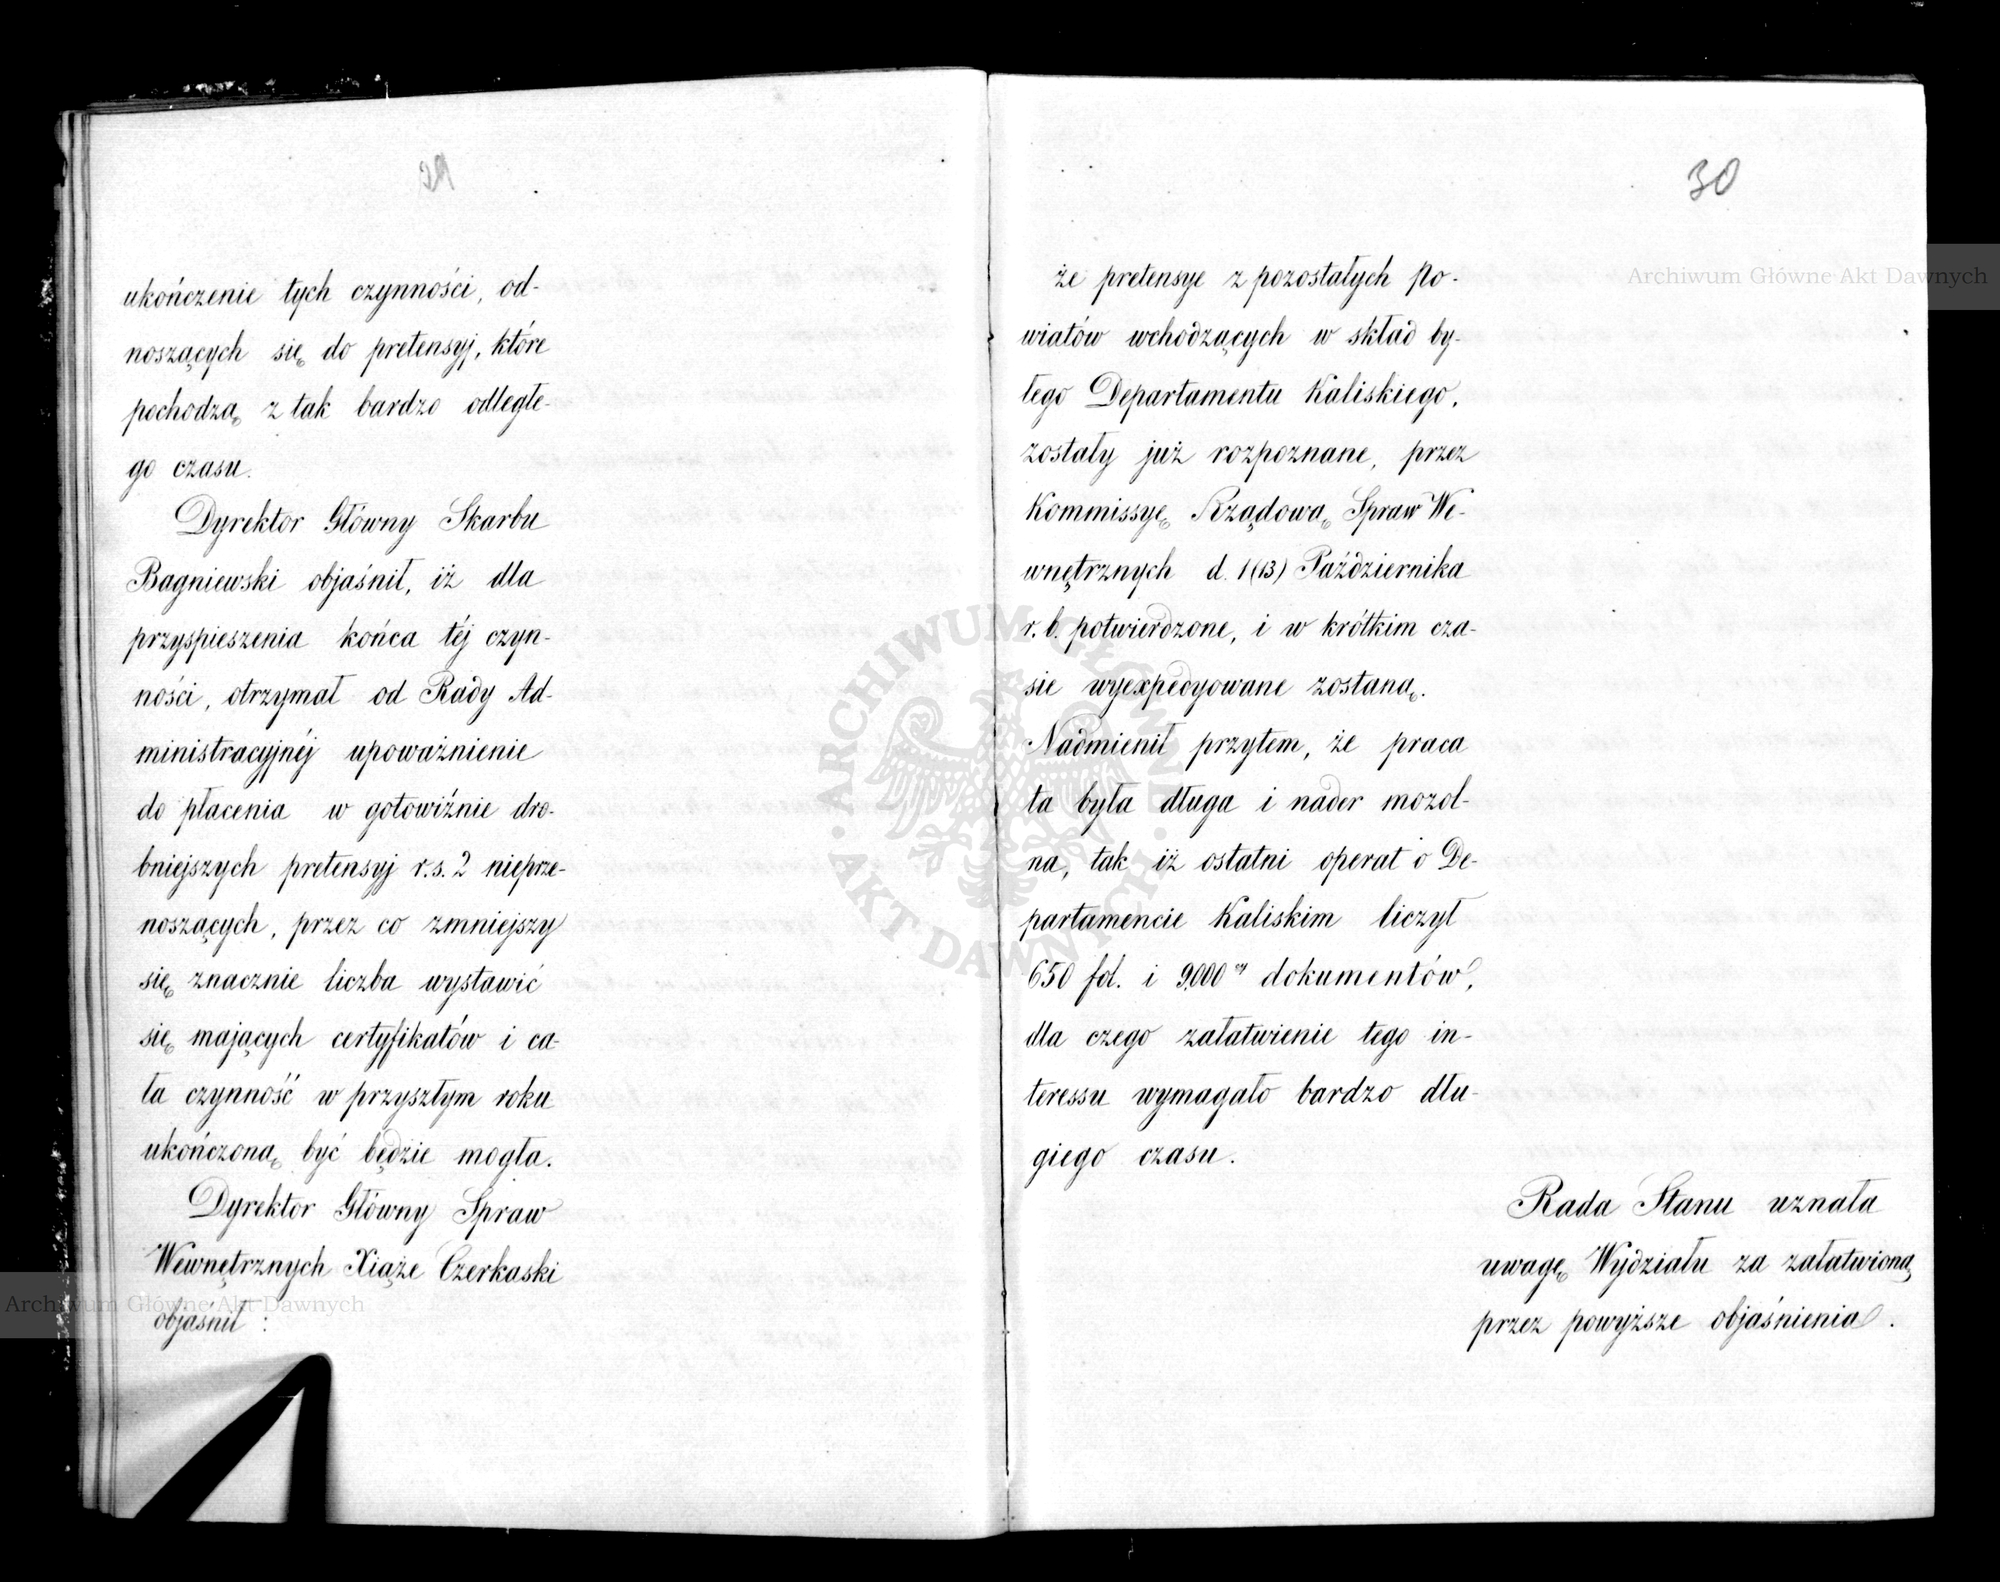 29
ukończenie tych czynności, od-
noszących się do pretensyj, które
pochodzą z tak bardzo odległe-
go czasu.
Dyrektor Główny Skarbu
Bagniewski objaśnił, iż dla
przyspieszenia końca téj czyn-
ności, otrzymał od Rady Ad-
ministracyjnéj upoważnienie
do płacenia w gotowiźnie dro-
bniejszych pretensyj r.s. 2 nieprze-
noszących, przez co zmniejszy
się znacznie liczba wystawić
się mających certyfikatów i ca-
ła czynność w przyszłym roku
ukończoną być będzie mogła.
Dyrektor Główny Spraw
Wewnętrznych Xiąże Czerkaski
objaśnił :
30
że pretensye z pozostałych Po-
wiatów wchodzących w skład by-
łego Departamentu Kaliskiego,
zostały już rozpoznane, przez
Kommissyę Rządową Spraw We-
wnętrznych d. 1 (13) Października
r. b. potwierdzone, i w krótkim cza-
sie wyexpedyowane zostaną.
Nadmienił przytem, że praca
ta była długa i nader mozol-
na, tak iż ostatni operat o De-
partamencie Kaliskim liczył
650 fol. i 9,000 cy dokumentów,
dla czego załatwienie tego in-
teressu wymagało bardzo dłu-
giego czasu.
Rada Stanu uznała
uwagę Wydziału za załatwioną
przez powyższe objaśnienia.
Archiwum Główne Akt Dawnych
Archiwum Główne Akt Dawnych
ARCHIWUM GŁÓWNE
AKT DAWNYCH